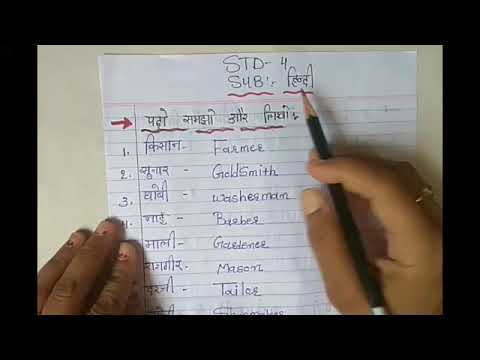 STD- 4
SUB:- हिन्दी
पढो समझो और लिखो:
1. किसान- Farmer
2. सूनार- Goldsmith
3. धोबी- washerman
नाई- Barber
माली- Gardener
राजगीर- Mason
दरजी- Tailor